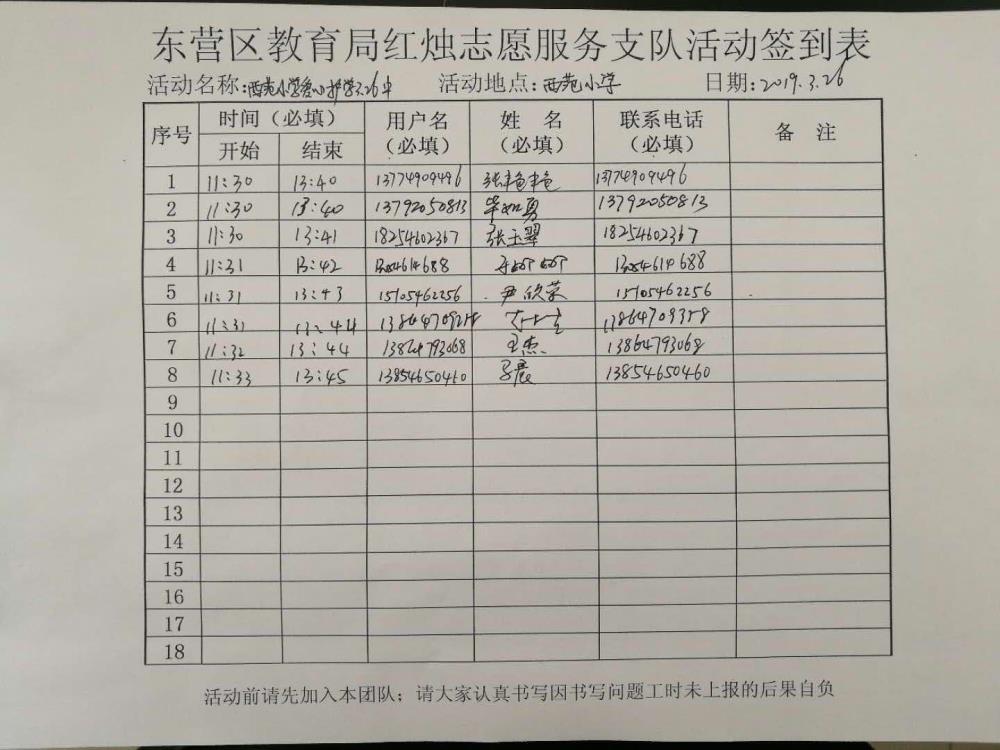 东营区教育局红烛志愿服务支队活动签到表
活动名称:西苑小学爱心护学3.26中 活动地点:西苑小学 日期:2019.3.26
序号 时间（必填） 用户名（必填） 姓 名（必填） 联系电话（必填） 备 注
开始 结束
1 11:30 13:40 13774909496 张艳艳 13774909496
2 11:30 13:40 13792050813 毕如勇 13792050813
3 11:30 13:41 18254602367 张玉翠 18254602367
4 11:31 13:42
5 11:31 13:43 15105462256 尹欣荣 15105462256
6 11:31 13:44
7 11:32 13:44 13864793068 王杰 13864793068
8 11:33 13:45 13854650460 13854650460
9
10
11
12
13
14
15
16
17
18
活动前请先加入本团队；请大家认真书写因书写问题工时未上报的后果自负